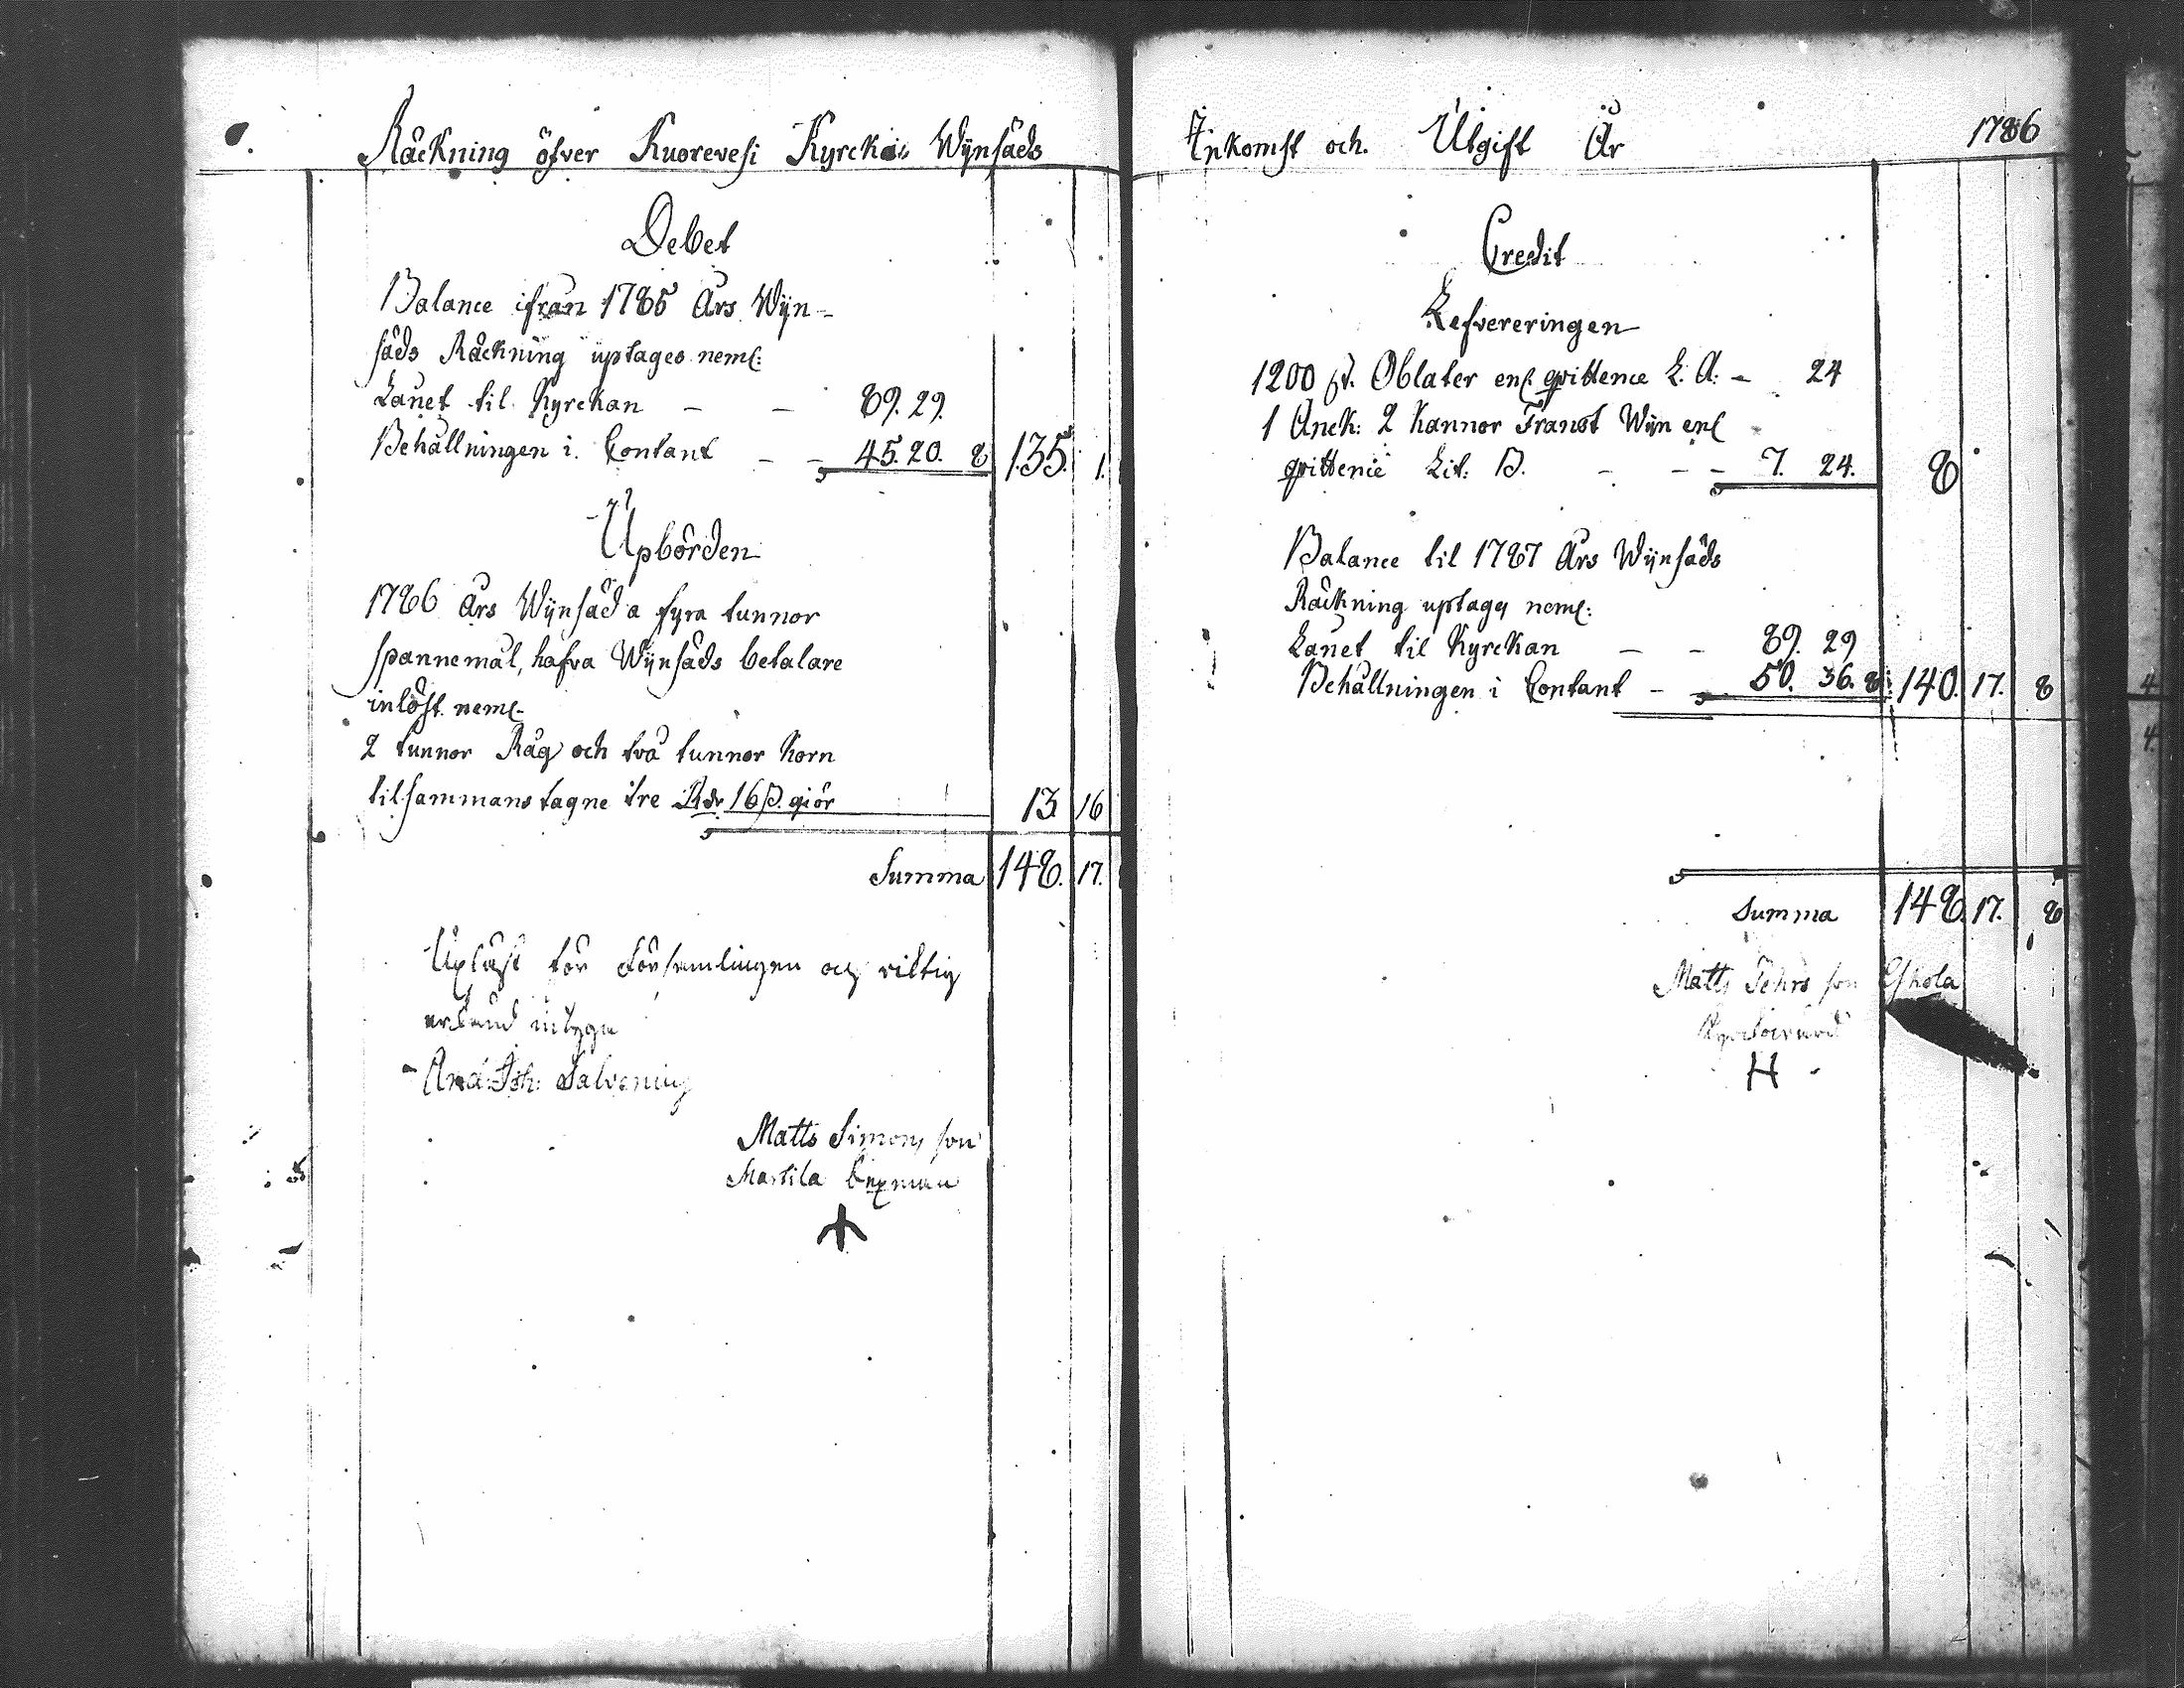 Räckning öfver Kuorevesi Kyrckas Wÿnsäds
Debet
Balance ifrån 1785 Års Wÿn-
säds Räckning uptages neml:
Lånet til Kyrckan - - 89. 29.
Behållningen i Contant - - 45. 20. 8 135. 1.
Upbörden
1786 Års Wÿnsäd a fyra tunnor
spannemål, hafva Wÿnsäds betalare
inlöst neml.
2 tunnor Råg och två tunnor Korn
tilsammans tagne tre Rdr 16 ß. giör 13 16
Summa 148. 17.
Upläst för Församlingen och riktig
erkänd intyga
And: Joh: Salvenius
Matts Simons son
Martila Sexman
Inkomst och Utgift År 1786
Credit
Lefvereringen
1200 st. Oblater enl. qvittence L. A: - 24
1 Anck: 2 Kannor Franst Wÿn enl
qvittence Lit: B. - - - 7. 24. 8
Balance til 1787 Års Wÿnsäds
Räckning uptages neml:
Lånet til Kyrckan - - 89. 29
Behållningen i Contant - - 50. 36. 8. 140. 17. 8
Summa 148. 17. 8
Matts son Eskola
H
4
4.